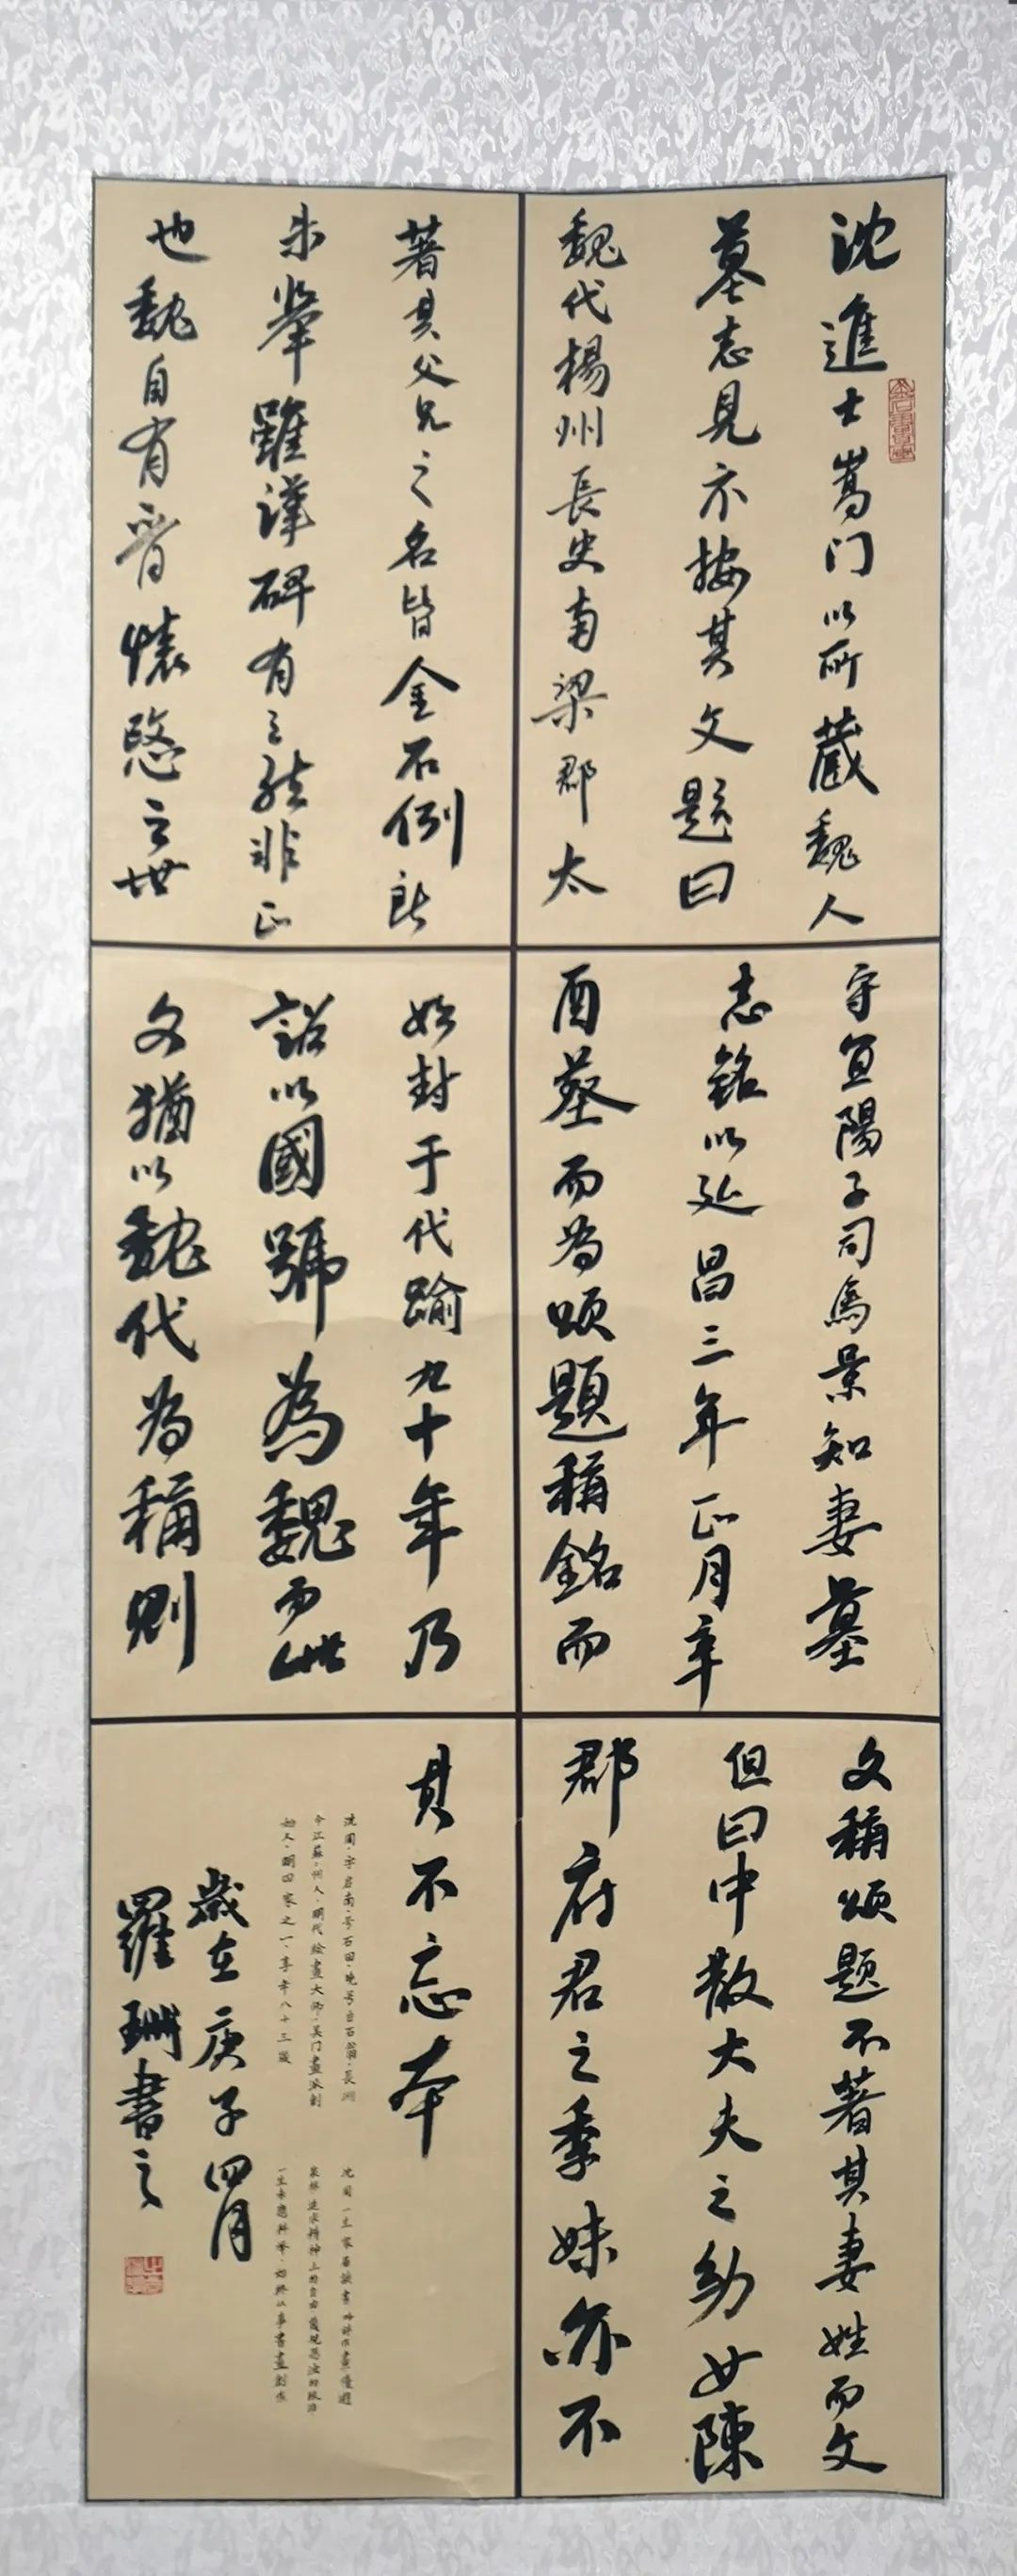 沈進士嵩门以所藏魏人
墓志見示按其文題曰
魏代楊州長史南梁郡太
守宜陽子司馬景知妻墓
志銘以延昌三年正月辛
酉葬而為頌題稱銘而
文稱頌題不著其妻姓而文
但曰中散大夫之幼女陳
郡府君之季妹亦不
著其父兄之名皆金石例所
未舉雖漢碑有之然非正
也魏自有晋懷愍之世
始封于代踰九十年乃
詔以國號為魏而此
文猶以魏代為稱則
其不忘本
沈周·字启南·号石田·晚号白石翁·長洲
今江蘇·州人·明代绘畫大师·吴门畫派創
始人·明四家之一·享年八十三歲
沈周一生家居讀書吟詩作畫優遊
林泉追求精神上的自由蔑視惡浊的政治
一生未應科举·始終从事書畫創作
歲在庚子四月
羅珊書之